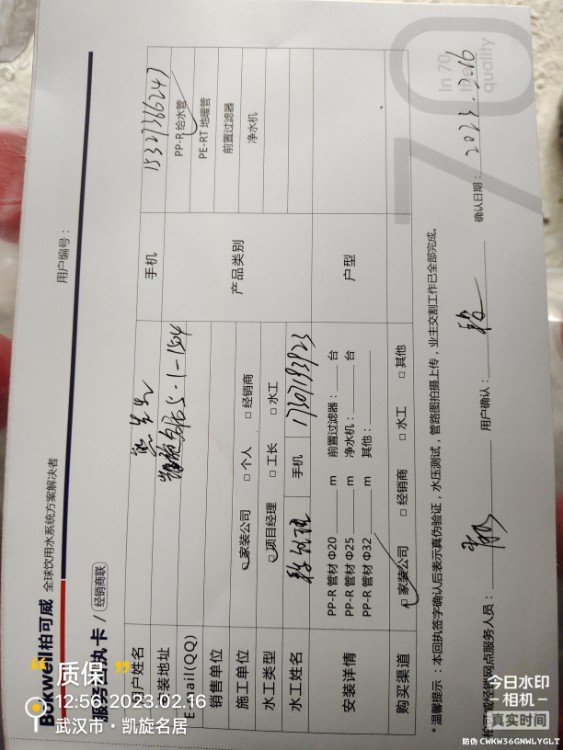 Bakwell柏可威 全球饮用水系统方案解决者
用户编号：
服务回执卡 / 经销商联
用户姓名
手机 15327366247
安装地址 凯旋名居5-1-1504
Email(QQ)
产品类别
PP-R 给水管
PE-RT 地暖管
前置过滤器
净水机
销售单位
施工单位 家装公司 □ 个人 □ 经销商
水工类型 项目经理 □ 工长 □ 水工
水工姓名
手机 17307193923
安装详情
PP-R 管材 Φ20 m 前置过滤器： 台
PP-R 管材 Φ25 m 净水机： 台
PP-R 管材 Φ32 m 其他：
户型
购买渠道 家装公司 □ 经销商 □ 水工 □ 其他
* 温馨提示：本回执签字确认后表示真伪验证，水压测试，管路图拍摄上传，业主交割工作已全部完成。
柏可威经销网点服务人员：
用户确认：
确认日期： 2023.2.16
70
In 70
quality
质保
12:56 2023.02.16
武汉市·凯旋名居
今日水印
相机
真实时间
防伪 CWKW36GNWLYGLT